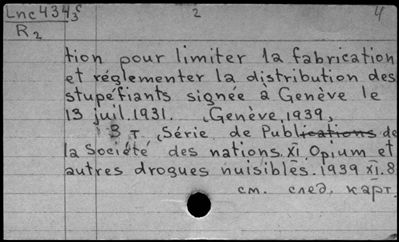 Lnc 434/3 c 2 4
R2
tion pour limiter la fabrication
et réglementer la distribution des
stupéfiants signée à Genève le
13 juil. 1931. Genève, 1939,
3 т. Série de Publications de
la Société des nations. XI Opium et
autres drogues nuisibles. 1939 XI. 8
см. след. карт.